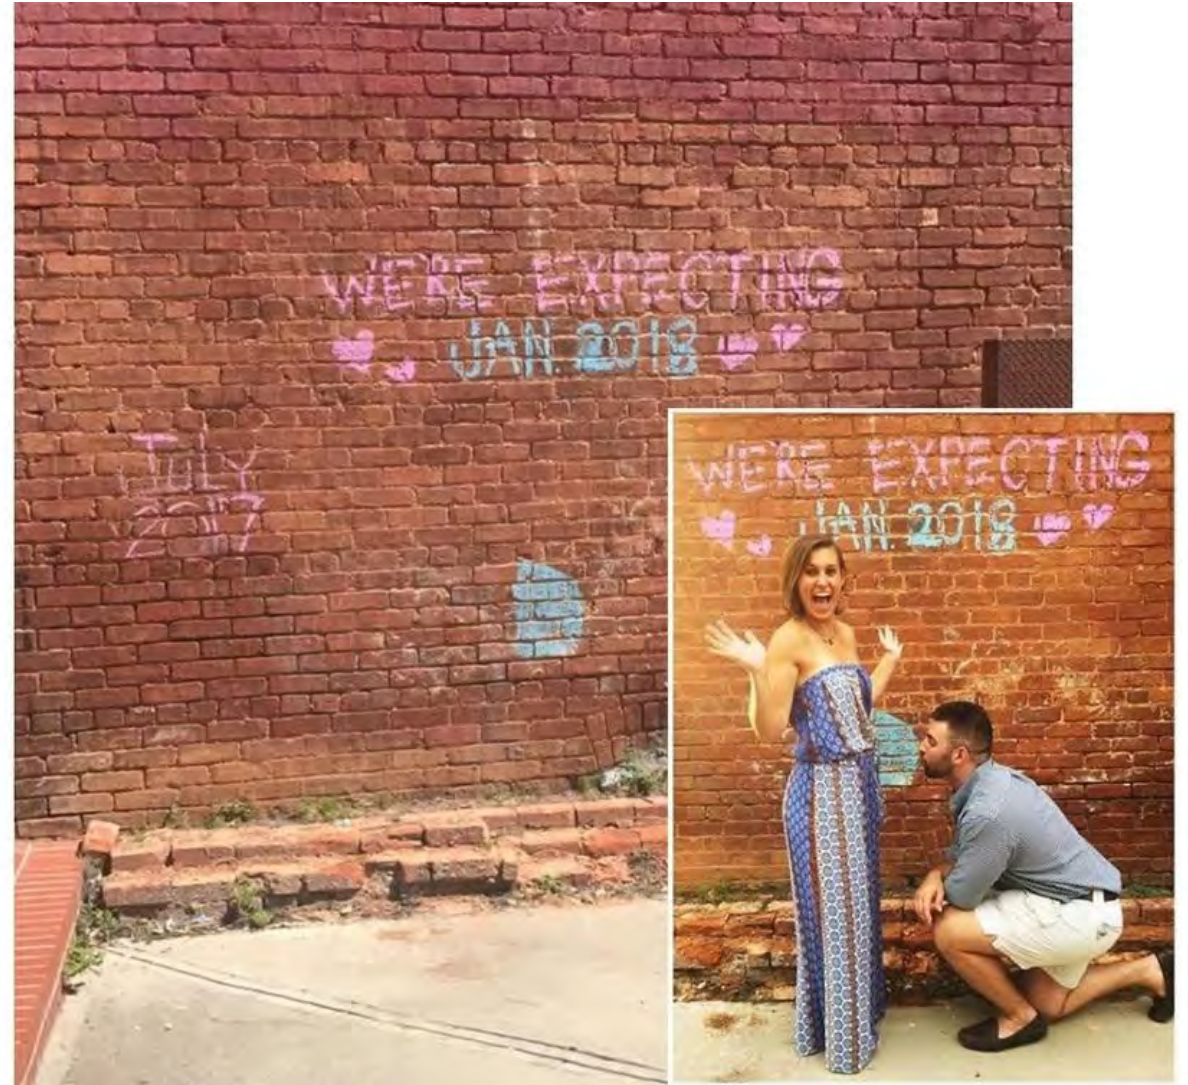 WE'RE EXPECTING
JAN. 2018
JULY
2017
WE'RE EXPECTING
JAN. 2018